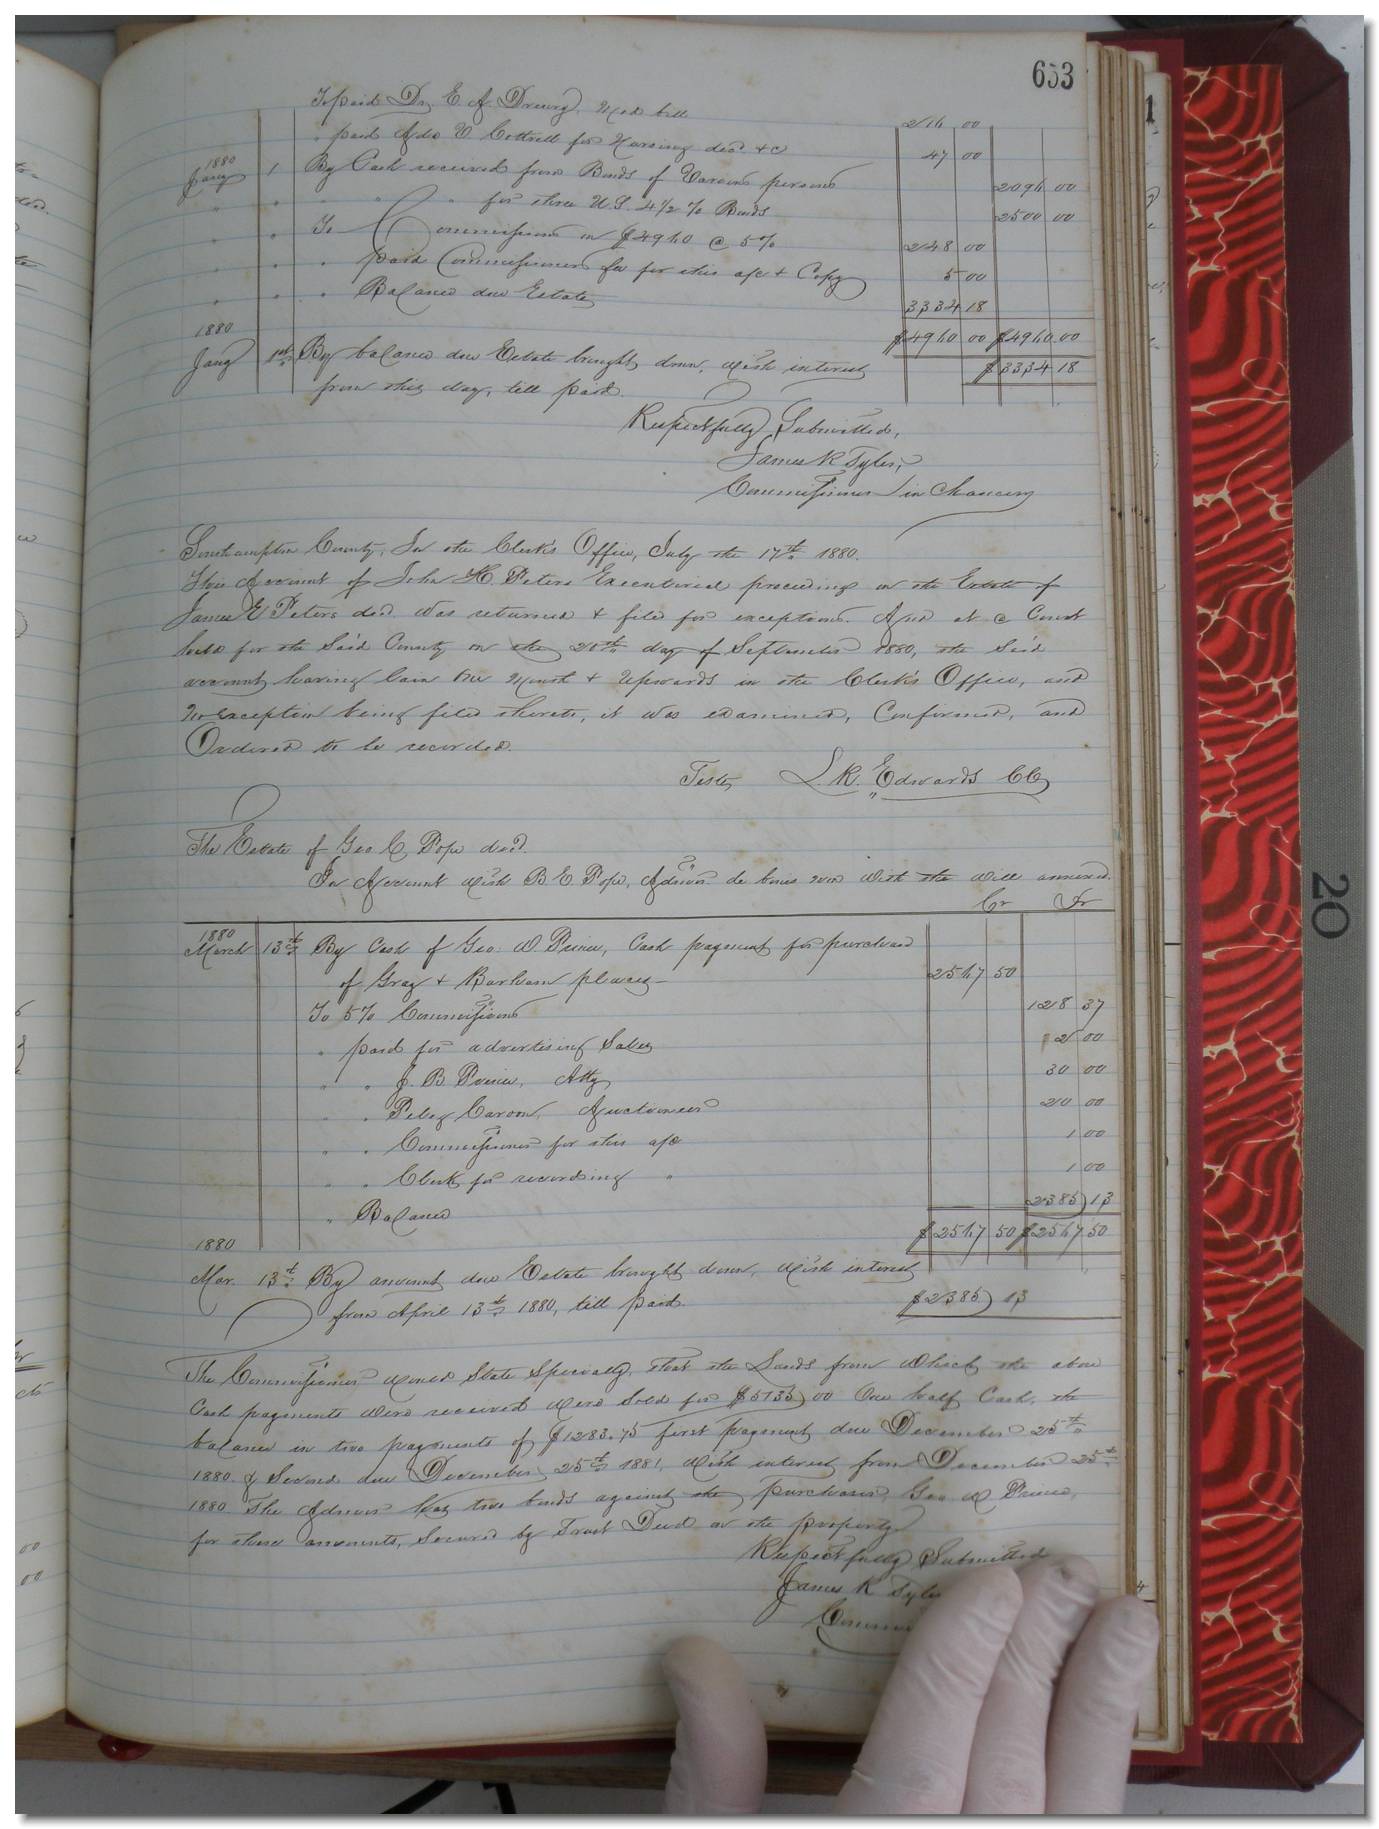 653
To paid Dr. E A. Drewry, Med bill 216 00
" paid Geo W Cottrell for Nursing decd &c 47 00
1880
Jany 1 By Cash received from Bonds of Various persons 2096 00
" " " " for three U.S. 4½ % Bonds 2500 00
" " To Commissions on $4960 @ 5% 248 00
" " " paid Commissioners fee for this a/c & Copy 5 00
" " " Balance due Estate 3334 18
1880 $4960 00 $4960.00
Jany 1st By balance due Estate brought down, with interest $3334 18
from this day, till paid.
Respectfully Submitted,
James R Tyler,
Commissioner in Chancery
Southampton County, In the Clerk's Office, July the 17th 1880.
This Account of John H. Peters Executorial proceedings on the Estate of
James E Peters decd. was returned & filed for exceptions. And at a Court
held for the Said County on the 20th day of September 1880, the Said
account having lain One Month & Upwards in the Clerk's Office, and
No exception being filed thereto, it was examined, Confirmed, and
Ordered to be recorded.
Teste, L. R. Edwards CC
The Estate of Geo C Pope decd.
In Account with B E Pope, Admor. de bonis non with the will annexed.
Cr Dr
1880
March 13th By Cash of Geo. W Prince, Cash payment for purchase
of Gray & Barham places 2567 50
To 5% Commissions 128 37
" paid for advertising Sales 2 00
" " J. B Prince, Atty 30 00
" " Peleg Carson, Auctioneer 20 00
" " Commissioner for this a/c 1 00
" " Clerk for recording " 1 00
" Balance 2385 13
1880 $2567 50 $2567.50
Mar. 13th By amount due Estate brought down, with interest
from April 13th 1880, till paid. $2385 13
The Commissioner would State Specially, that the Lands from which the above
Cash payments were received were Sold for $5135 00 One half Cash, the
balance in two payments of $1283.75 first payment due December 25th
1880. & Second due December 25th 1881, with interest from December 25th
1880. The Admor has two bonds against the purchaser, Geo W Prince,
for these amounts, Secured by Trust Deed on the property
Respectfully Submitted
James R Tyle
Commi
20